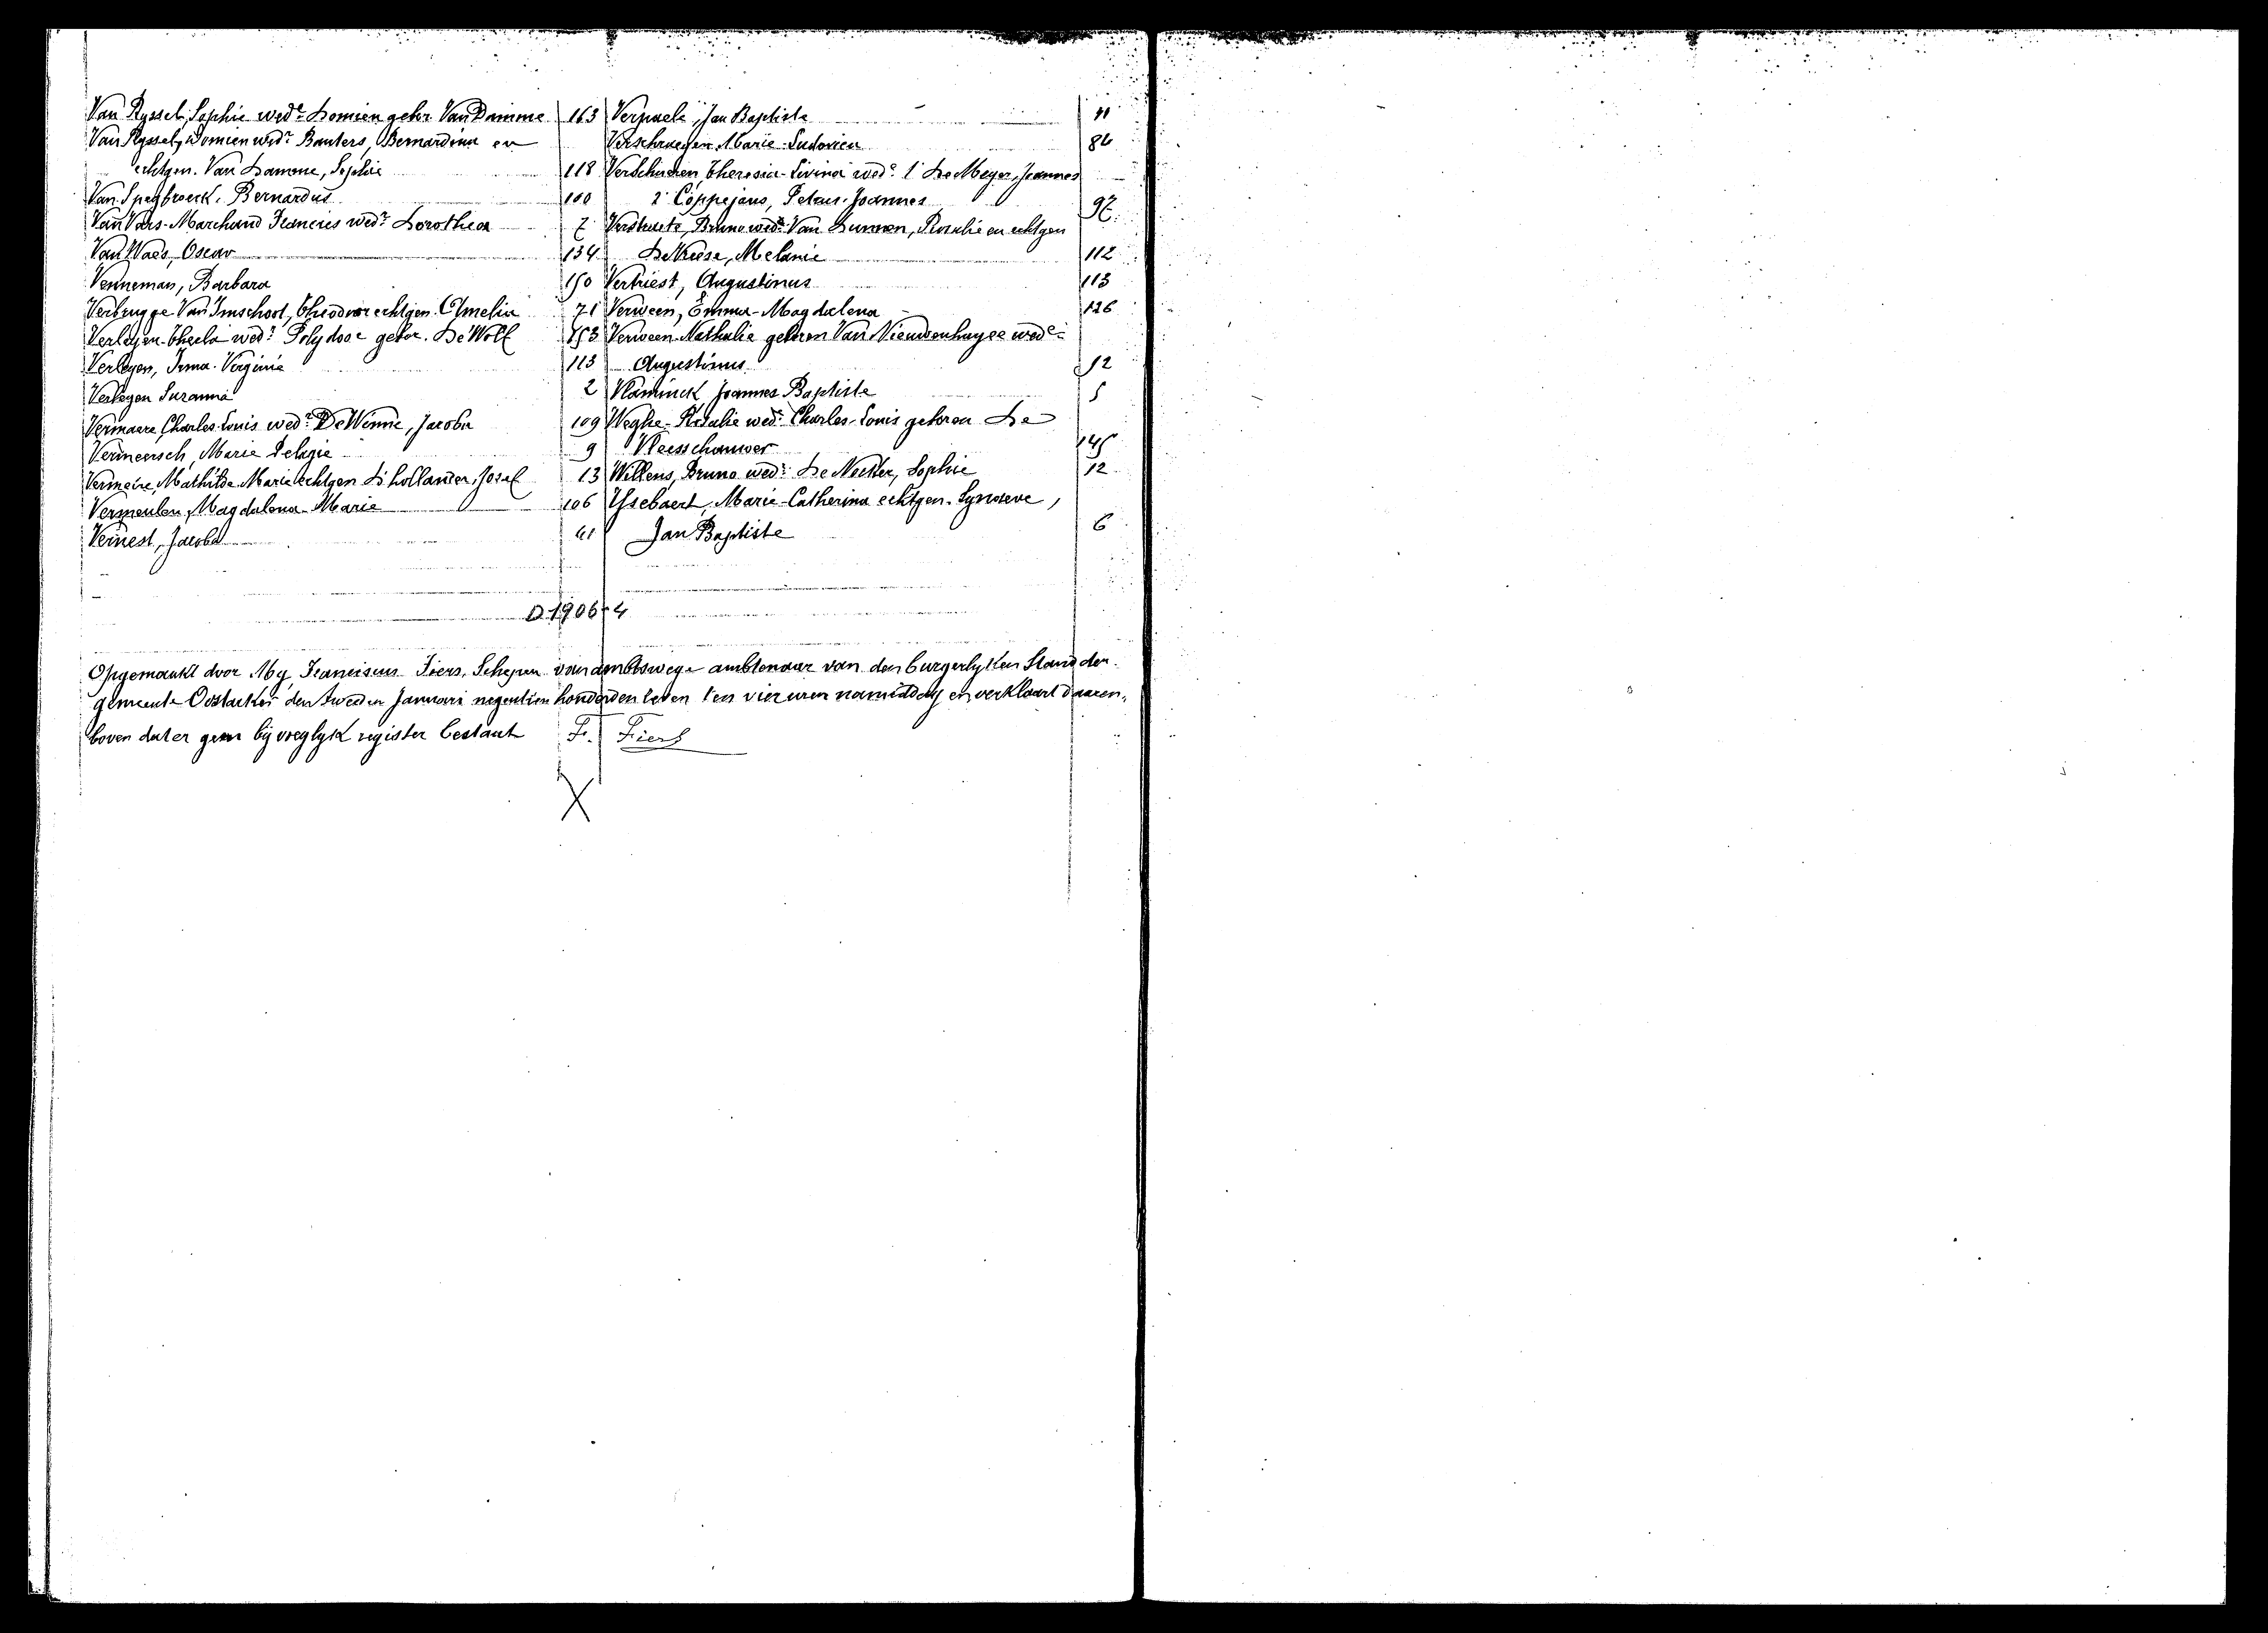 Van Ryssel, Sophie wede Domien gebor Van Damme 163
Van Ryssel, Domien wedr Bauters, Bernardina en
echtgen. Van Damme, Sophie 118
Van Speybroeck, Bernardus 100
Van Vars-Marchand Francies wedr Dorothea 7
Van Waes, Oscar 134
Venneman, Barbara 150
Verbrugge Van Imschoot, Theodoor echtgen. Amelia 71
Verleyen-Thecla wede Polydoor gebor. De Wolf 153
Verleyen, Irma-Verginie 113
Verleyen Suzanna 2
Vermaere, Charles-Louis wedr De Winne, Jacoba 109
Vermeersch, Marie Pelagie 9
Vermeire, Mathilde Marie echtgen D'hollander, Josef 13
Vermeulen, Magdalena-Marie 106
Vernest, Jacoba 61
Verpaele, Jan Baptiste 41
Verschraegen Marie-Ludovica 86
Verschueren Theresia-Livina wede 1° De Meyer, Joannes
2° Coppejans, Petrus-Joannes 97
Verstraete, Bruno wedr Van Durmen, Rosalie en echtgen
De Neise, Melanie 112
Vertriest, Augustinus 113
Verween, Emma-Magdalena 126
Verween-Nathalie geboren Van Nieuwenhuyse wede
Augustinus 12
Vlaminck Joannes Baptiste 5
Weghe-Rosalie wede Charles-Louis geboren De
Vleesschauwer 145
Willems, Bruno wedr De Necker, Sophie 12
Ysebaert, Marie-Catherina echtgen. Lynseve,
Jan Baptiste 6
D 1906-4
Opgemaakt door My Franciscus Fiers, Schepen van ambtswege ambtenaar van den burgerlyken Stand der
gemeente Oostacker den tweeden Januari negentien honderd en zeven ten vier uren namiddag en verklaart daaren-
boven dat er geen bijvoeglyk register bestaat Fr. Fiers